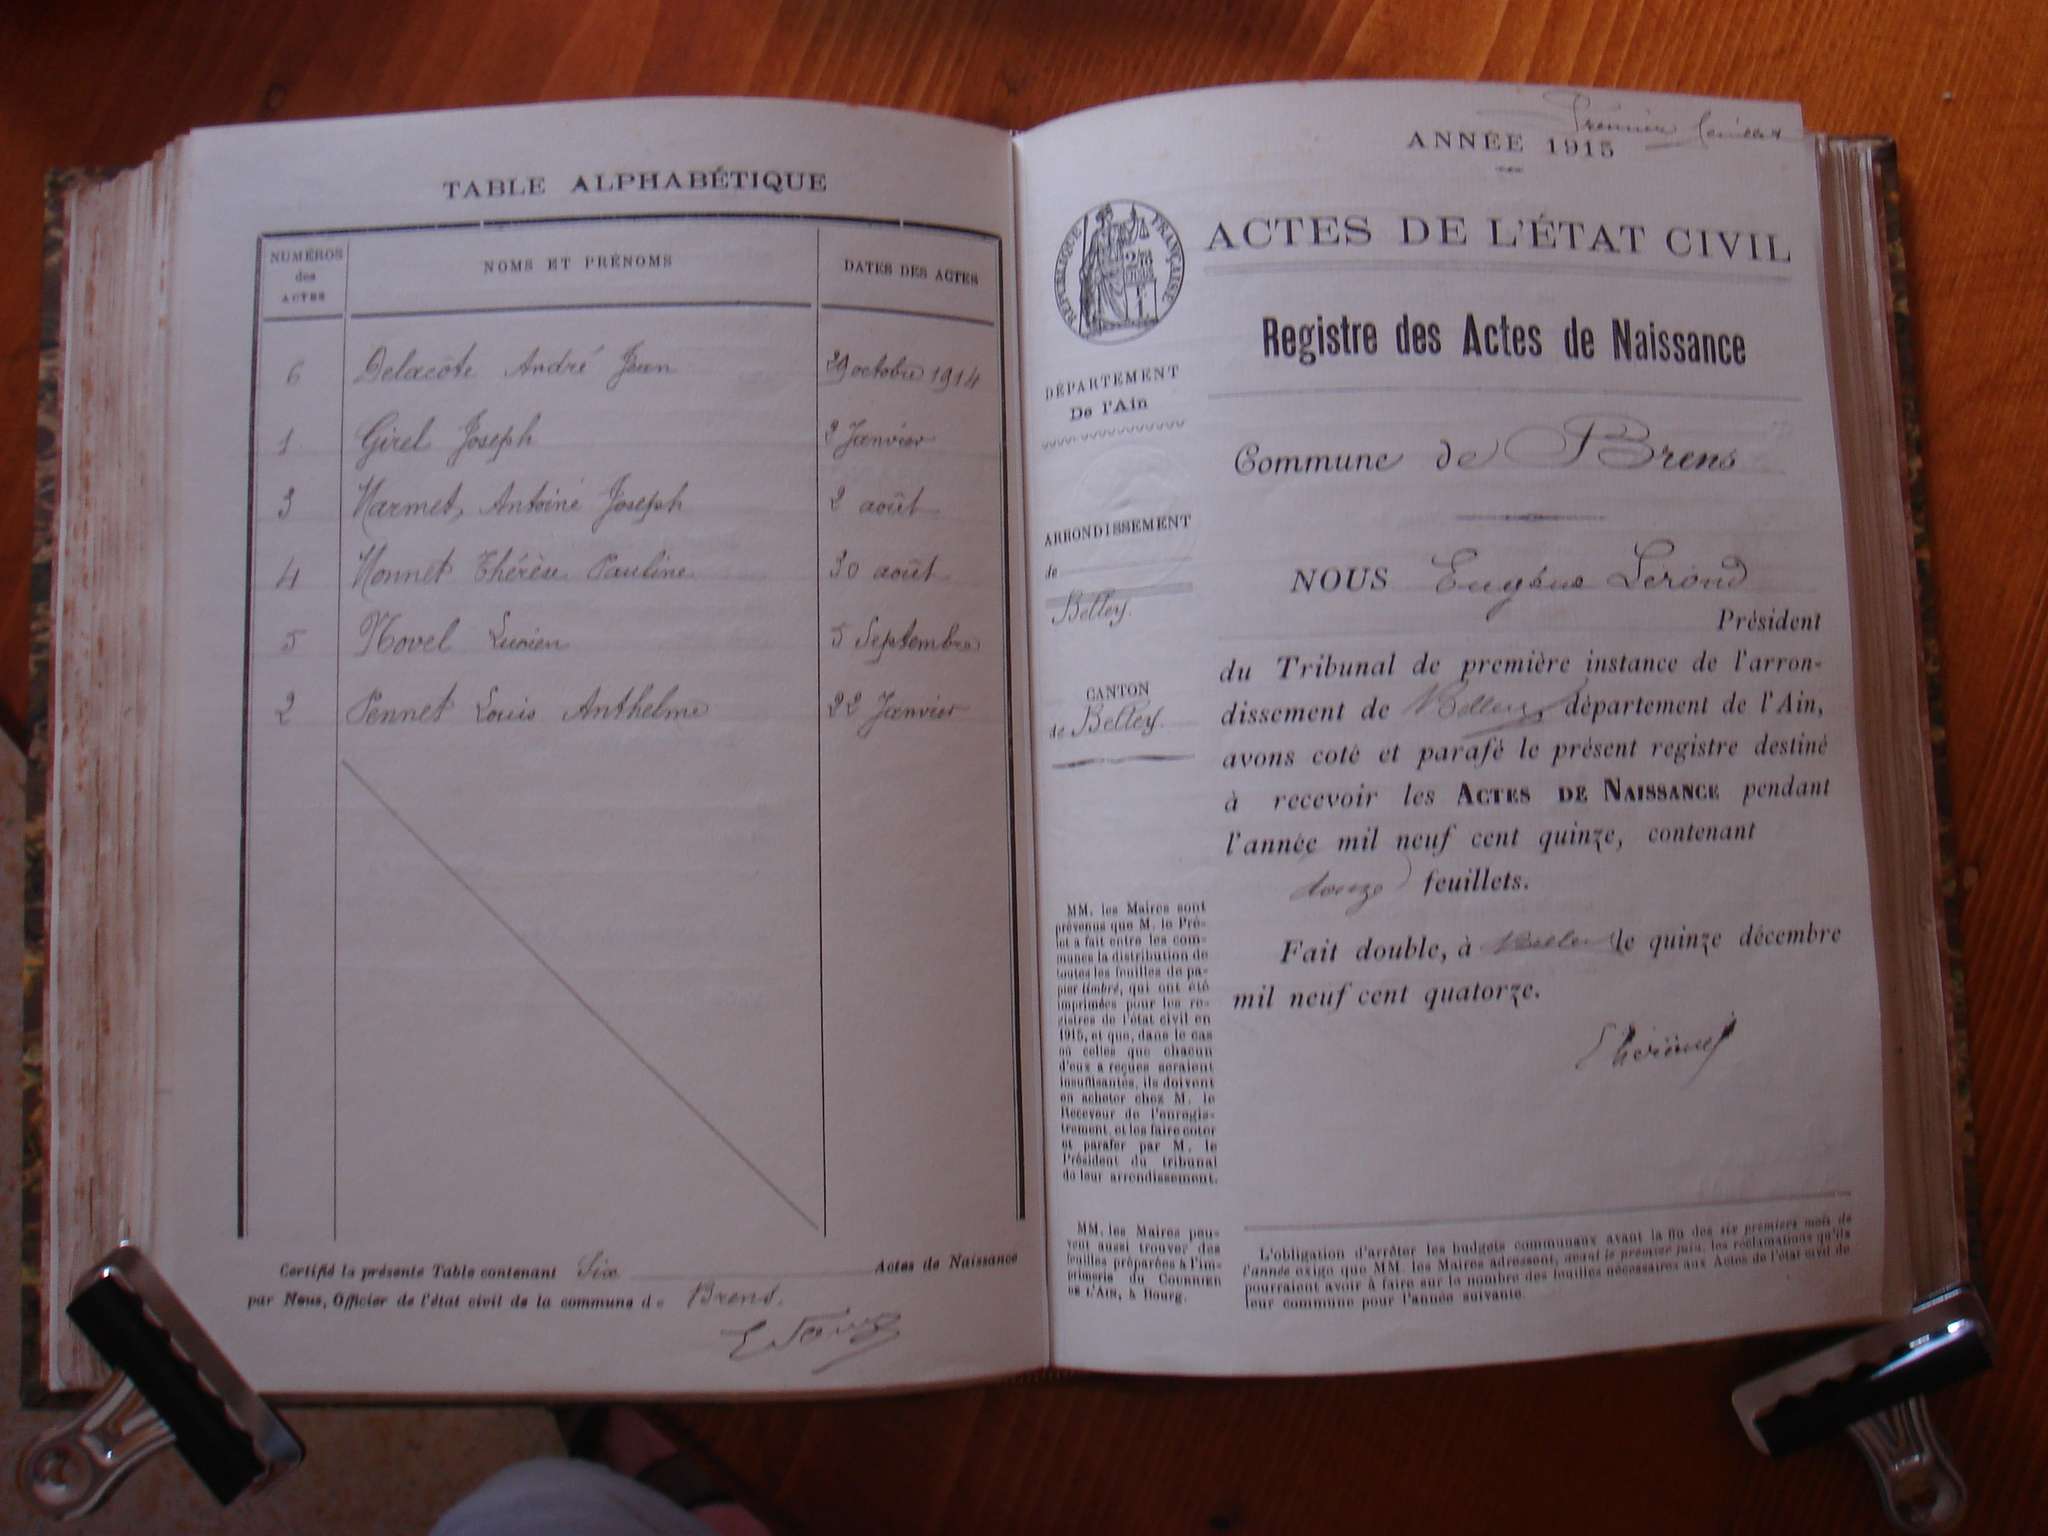 TABLE ALPHABÉTIQUE
NUMÉROS des ACTES
NOMS ET PRÉNOMS
DATES DES ACTES
6 Delacôte André Jean 29 octobre 1914
1 Girel Joseph 3 Janvier
3 Marmet Antoine Joseph 2 août
4 Monnet Thérèse Pauline 30 août
5 Novel Lucien 5 Septembre
2 Pennet Louis Anthelme 22 Janvier
Certifié la présente Table contenant Six Actes de Naissance
par Nous, Officier de l'état civil de la commune de Brens.
Premier feuillet
ANNÉE 1915
RÉPUBLIQUE FRANÇAISE
ACTES DE L'ÉTAT CIVIL
Registre des Actes de Naissance
DÉPARTEMENT
De l'Ain
Commune de Brens
ARRONDISSEMENT
de
Belley.
CANTON
de Belley.
NOUS Eugène
Président
du Tribunal de première instance de l'arron-
dissement de Belley, département de l'Ain,
avons coté et parafé le présent registre destiné
à recevoir les ACTES DE NAISSANCE pendant
l'année mil neuf cent quinze, contenant
douze feuillets.
Fait double, à Belley le quinze décembre
mil neuf cent quatorze.
MM. les Maires sont
prévenus que M. le Pré-
fet a fait entre les com-
munes la distribution de
toutes les feuilles de pa-
pier timbré, qui ont été
imprimées pour les re-
gistres de l'état civil en
1915, et que, dans le cas
où celles que chacun
d'eux a reçues seraient
insuffisantes, ils doivent
en acheter chez M. le
Receveur de l'enregis-
trement, et les faire coter
et parafer par M. le
Président du tribunal
de leur arrondissement.
MM. les Maires peu-
vent aussi trouver des
feuilles préparées à l'im-
primerie du COURRIER
DE L'AIN, à Bourg.
L'obligation d'arrêter les budgets communaux avant la fin des six premiers mois de
l'année exige que MM. les Maires adressent, avant le premier juin, les réclamations qu'ils
pourraient avoir à faire sur le nombre des feuilles nécessaires aux Actes de l'état civil de
leur commune pour l'année suivante.